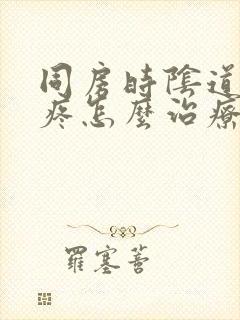 同房時陰道
疼怎麼治療
羅塞菩